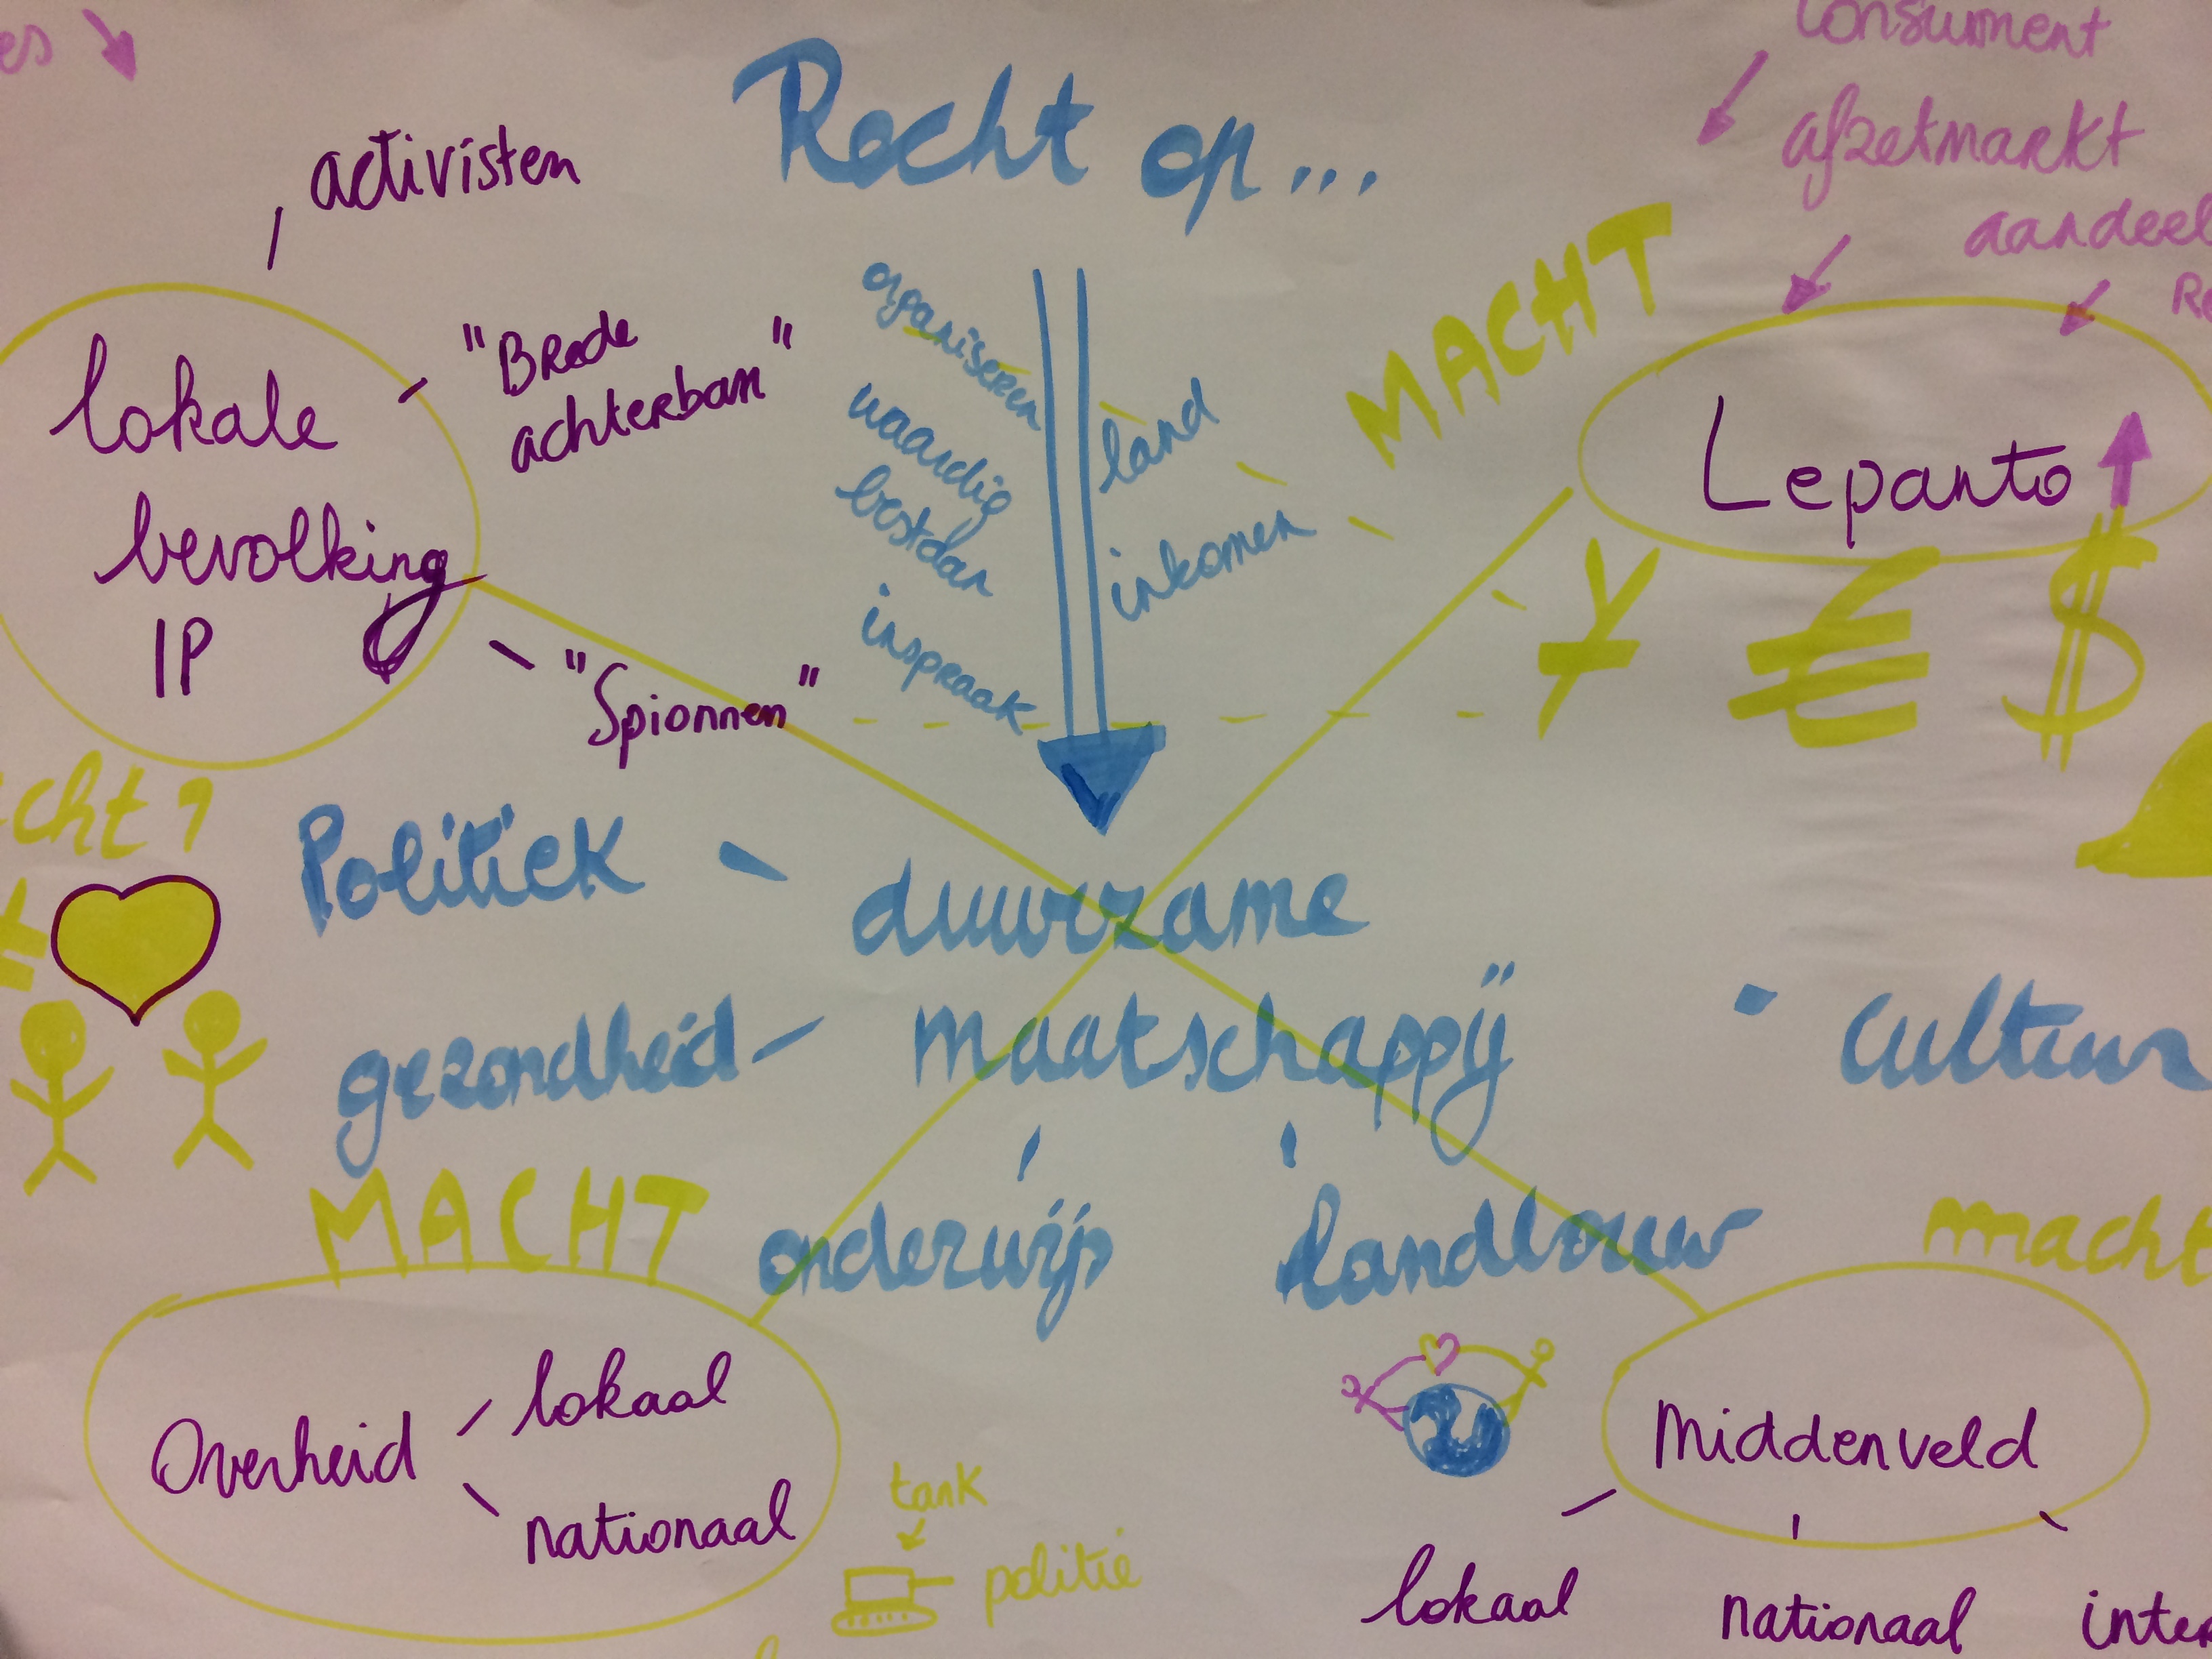 Consument
afzetmarkt
aandeel
Recht op...
activisten
MACHT
organiseren
land
waardig
bestaan
inkomen
inspraak
lokale
bevolking
IP
"Brede
achterban"
"Spionnen"
Lepanto
¥ € $
Politiek
duurzame
maatschappij
gezondheid
cultuur
onderwijs
landbouw
MACHT
macht
Overheid
lokaal
nationaal
tank
politie
Middenveld
lokaal
nationaal
inter